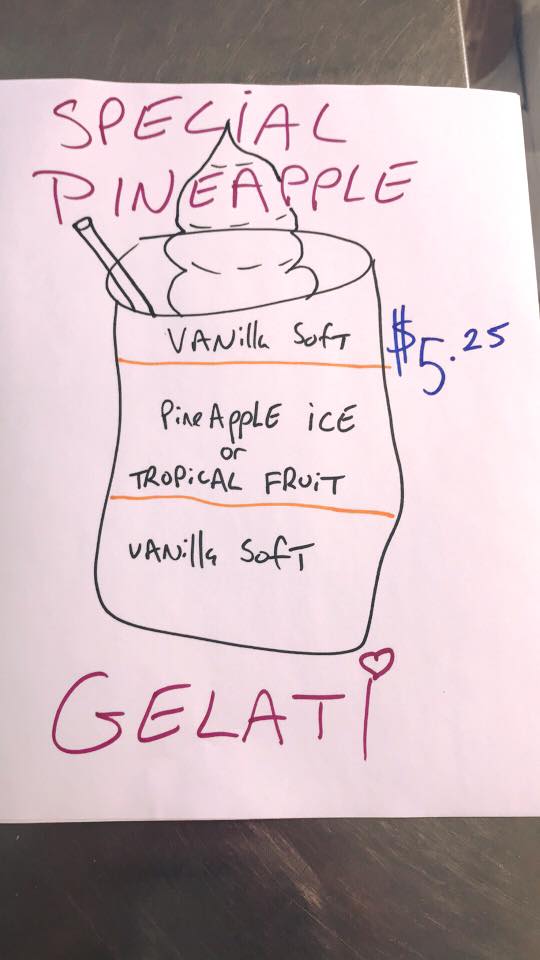 SPECiAL
PINEAPPLE
VANilla SofT
$5.25
PineAppLE iCE
or
TROPiCAL FRUiT
VANilla SofT
GELATi